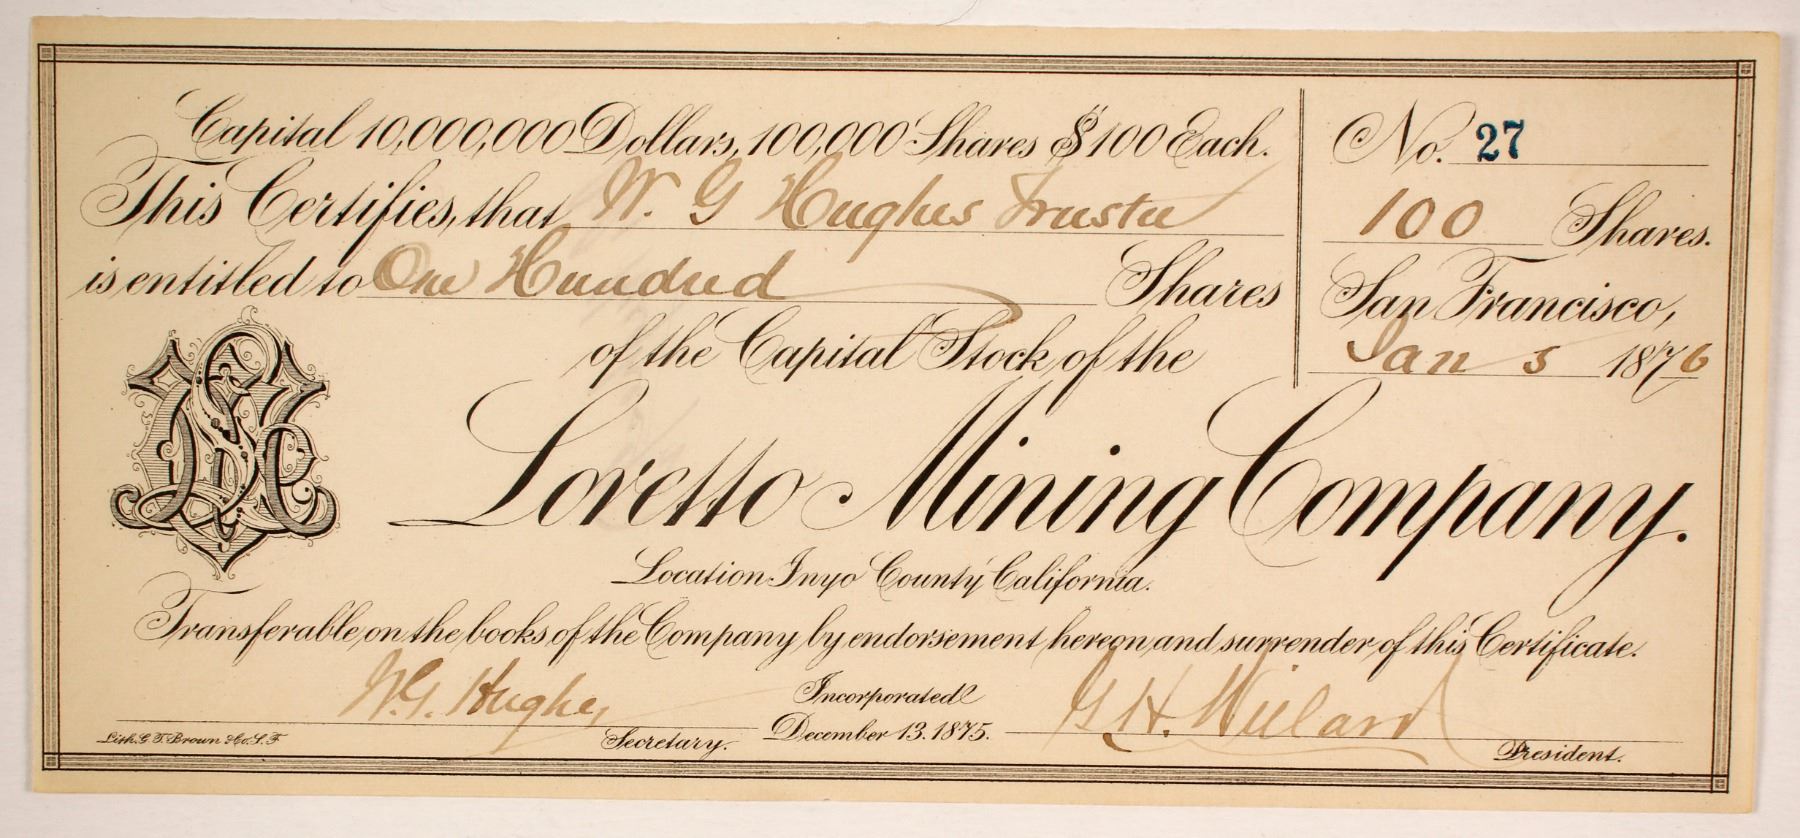 Capital 10,000,000 Dollars, 100,000 Shares $100 Each.
This Certifies, that W. G Hughes Trustee
is entitled to One Hundred Shares
of the Capital Stock of the
No. 27
100 Shares.
San Francisco,
Jan 5 1876
Loretto Mining Company.
Location Inyo County California.
Transferable on the books of the Company by endorsement hereon and surrender of this Certificate.
W.G. Hughes
Secretary.
Incorporated
December 13. 1875.
G H. Willard
President.
Lith. G. T. Brown & Co. S. F.